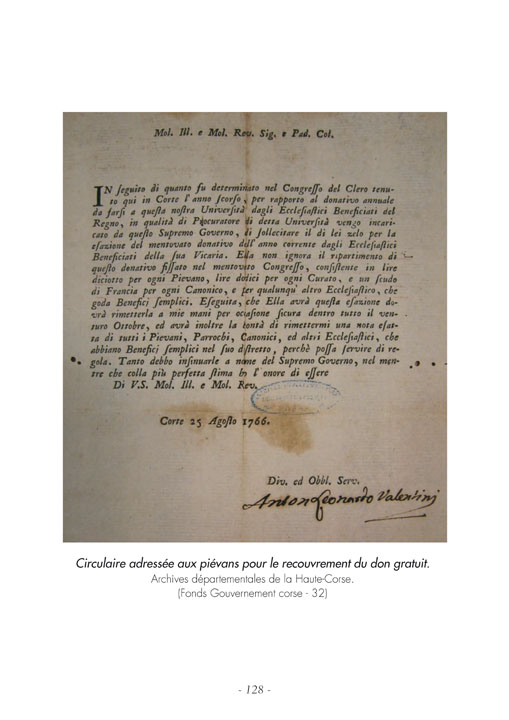 Mol. Ill. e Mol. Rev. Sig. e Pad. Col.
IN ſeguito di quanto fu determinato nel Congreſſo del Clero tenu-
to qui in Corte l'anno ſcorſo, per rapporto al donativo annuale
da farſi a queſta noſtra Univerſità dagli Eccleſiaſtici Beneficiati del
Regno, in qualità di Procuratore di detta Univerſità vengo incari-
cato da queſto Supremo Governo, di ſollecitare il di lei zelo per la
eſazione del mentovato donativo dell'anno corrente dagli Eccleſiaſtici
Beneficiati della ſua Vicaria. Ella non ignora il ripartimento di
queſto donativo fiſſato nel mentovato Congreſſo, conſiſtente in lire
diciotto per ogni Pievano, lire dodici per ogni Curato, e un ſcudo
di Francia per ogni Canonico, e per qualunqu' altro Eccleſiaſtico, che
goda Beneficj ſemplici. Eſeguita, che Ella avrà queſta eſazione do-
vrà rimetterla a mie mani per occaſione ſicura dentro tutto il ven-
turo Ottobre, ed avrà inoltre la bontà di rimettermi una nota eſat-
ta di tutti i Pievani, Parrochi, Canonici, ed altri Eccleſiaſtici, che
abbiano Beneficj ſemplici nel ſuo diſtretto, perchè poſſa ſervire di re-
gola. Tanto debbo inſinuarle a nome del Supremo Governo, nel men-
tre che colla più perfetta ſtima ho l'onore di eſſere
Di V.S. Mol. Ill. e Mol. Rev.
Corte 25 Agoſto 1766.
Div. ed Obbl. Serv.
Anton Leonardo Valentini
Circulaire adressée aux piévans pour le recouvrement du don gratuit.
Archives départementales de la Haute-Corse.
(Fonds Gouvernement corse - 32)
- 128 -